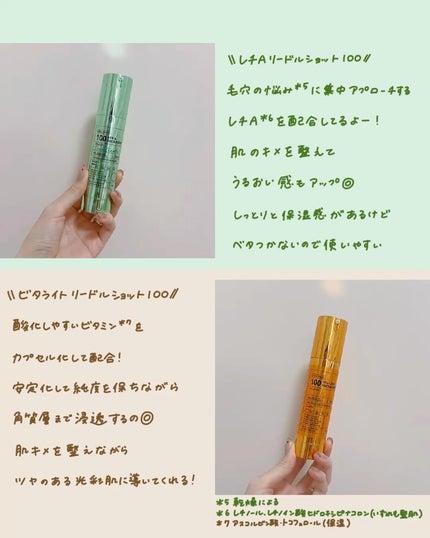 \\レチAリードルショット100//
毛穴の悩み*5に集中アプローチする
レチA*6を配合してるよー!
肌のキメを整えて
うるおい感もアップ◎
しっとりと保湿感があるけど
ベタつかないので使いやすい
100
\\ビタライトリードルショット100//
酸化しやすいビタミン*7を
カプセル化して配合!
安定化して純度を保ちながら
角質層まで浸透するの◎
肌キメを整えながら
ツヤのある光彩肌に導いてくれる!
100
*5 乾燥による
*6 レチノール、レチノイン酸ヒドロキシピナコロン(いずれも整肌)
*7 アスコルビン酸・トコフェロール(保湿)